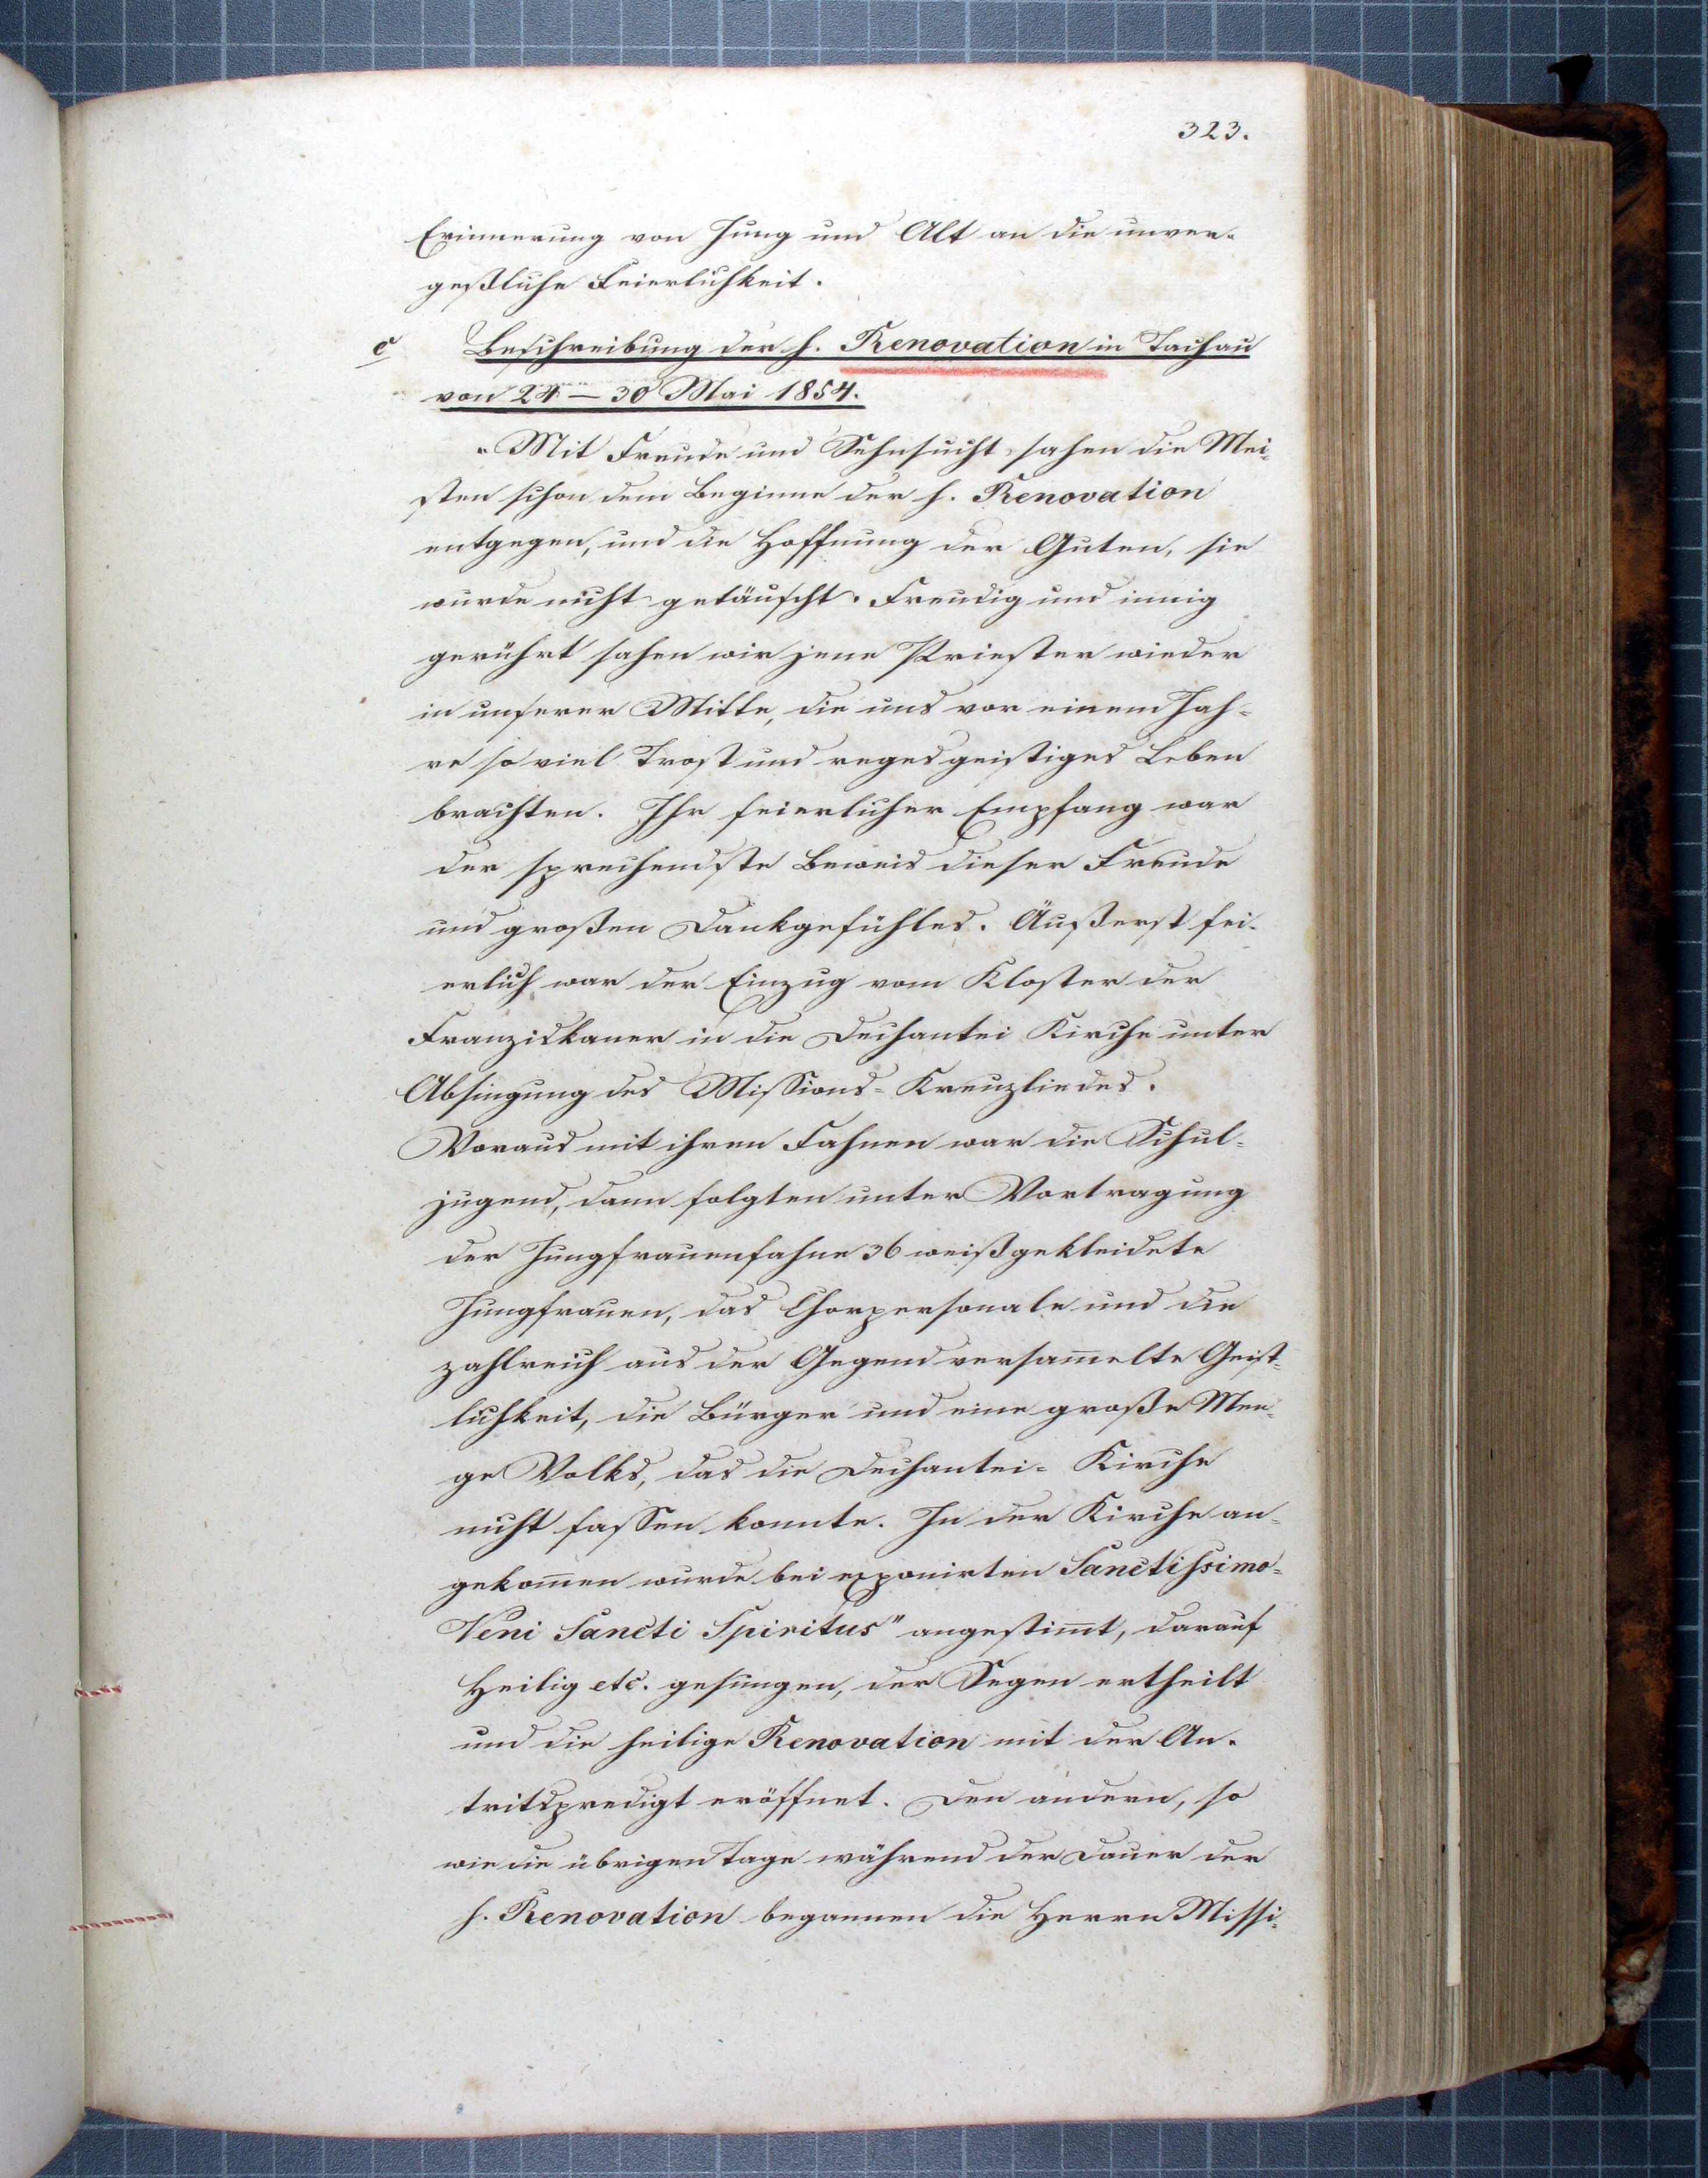 323.
Erinnerung von Jung und Alt an die unver-
geßliche Feierlichkeit.
c Beschreibung der h. Renovation in Tachau
von 24 – 30 Mai 1854.
„Mit Freude und Sehnsucht sahen die Mei-
sten schon dem Beginne der h. Renovation
entgegen, und die Hoffnung der Guten, sie
wurde nicht getäuscht. Freudig und innig
gerührt sahen wir jene Priester wieder
in unserer Mitte, die uns vor einem Jah-
re so viel Trost und reges geistiges Leben
brachten. Ihr feierlicher Empfang war
der sprechendste Beweis dieser Freude
und großen Dankgefühles. Äußerst fei-
erlich war der Einzug vom Kloster der
Franziskaner in die Dechantei Kirche unter
Absingung des Missions-Kreuzliedes.
Voraus mit ihren Fahnen war die Schul-
jugend, dann folgten unter Vortragung
der Jungfrauenfahne 36 weißgekleidete
Jungfrauen, das Chorpersonale und die
zahlreich aus der Gegend versam̅elte Geist-
lichkeit, die Bürger und eine große Men-
ge Volks, das die Dechantei-Kirche
nicht fassen konnte. In der Kirche an-
gekom̅en wurde bei exponirten Sanctissimo-
Veni Sancti Spiritus" angestim̅t, darauf
Heilig etc. gesungen, der Segen ertheilt
und die heilige Renovation mit der An-
tritspredigt eröffnet. Den andern, so
wie die übrigen Tage während der Dauer der
h. Renovation begannen die Herrn Missi-